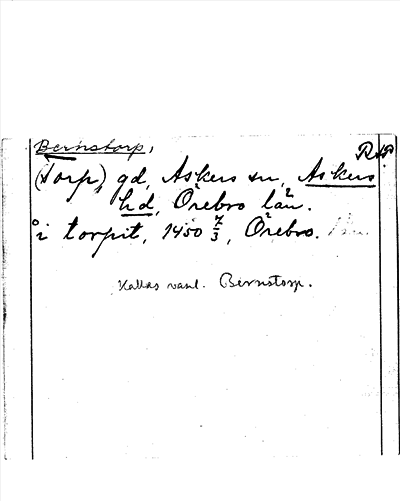 Bernstorp,
(Torp), gd, Askers sn, Askers
hd, Örebro län.
i torpit, 1450 7/3, Örebro.
Kallas vanl. Bernstorp.